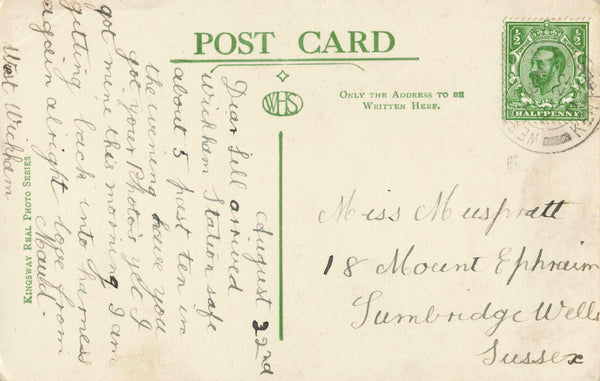 POST CARD
WHS
ONLY THE ADDRESS TO BE
WRITTEN HERE.
½ ½
HALFPENNY
KINGSWAY REAL PHOTO SERIES
West Wickham
August 22nd
Dear Lell arrived
wickham Station safe
about 5 past ten in
the evening have you
got your Photo's yet I
got mine this morning I am
getting back into harness
again alright love from
Maud.
Miss Muspratt
18 Mount Ephraim
Tumbridge Wells
Sussex